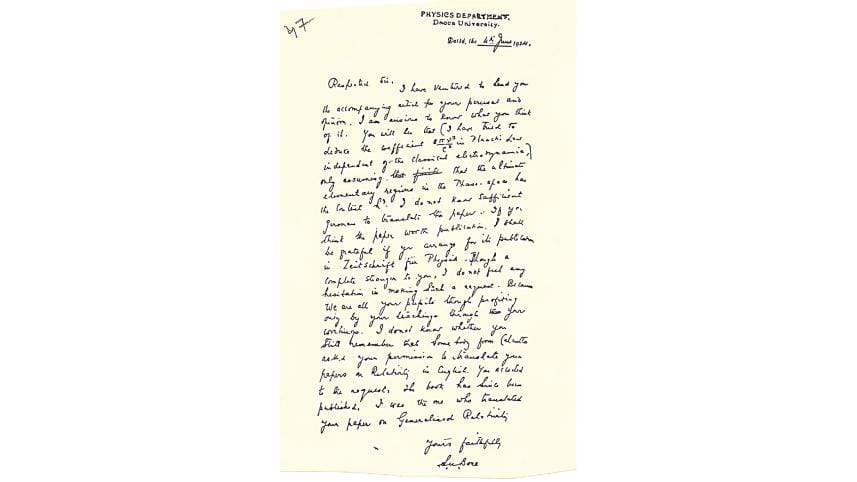 PHYSICS DEPARTMENT,
Dacca University.
Dacca, the 4th June 1924.
Respected Sir, I have ventured to send you
the accompanying article for your perusal and
opinion. I am anxious to know what you think
of it. You will see that (I have tried to
deduce the coefficient 8πν²/c³ in Planck's Law
independent of the classical electrodynamics,)
only assuming that the ultimate
elementary regions in the Phase-space has
the content h³. I do not know sufficient
German to translate the paper. If you
think the paper worth publication, I shall
be grateful if you arrange for its publication
in Zeitschrift für Physik. Though a
complete stranger to you, I do not feel any
hesitation in making such a request. Because
we are all your pupils though profiting
only by your teachings through your
writings. I do not know whether you
still remember that somebody from Calcutta
asked your permission to translate your
papers on Relativity in English. You acceded
to the request. The book has since been
published. I was the one who translated
your paper on Generalised Relativity
Yours faithfully
S.N. Bose